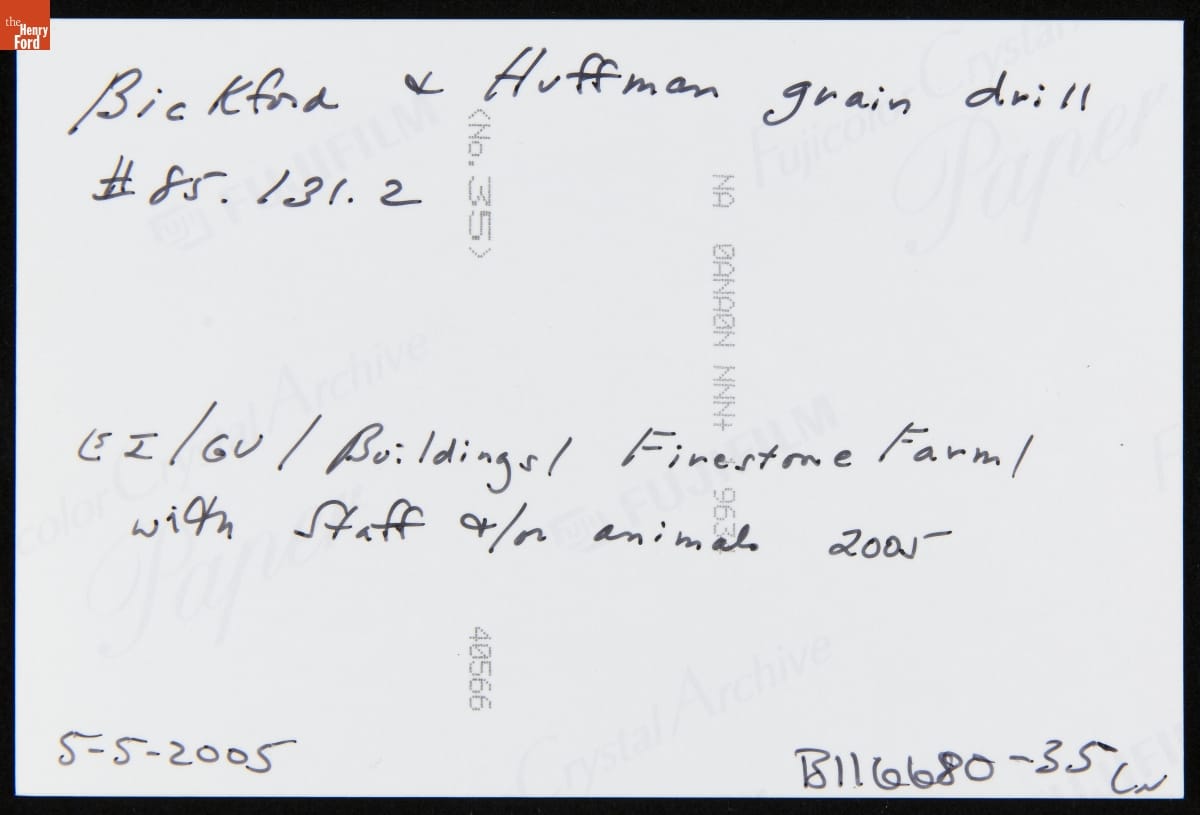 the
Henry
Ford
Bickford & Huffman grain drill
# 85.131.2
<No. 35>
NA 0ANA0N NNN+
963
EI/GV/Buildings/ Firestone Farm/
with Staff &/or animals 2005
40566
5-5-2005
B116680-35
FUJIFILM
Fujicolor Crystal Archive Paper
Crystal Archive